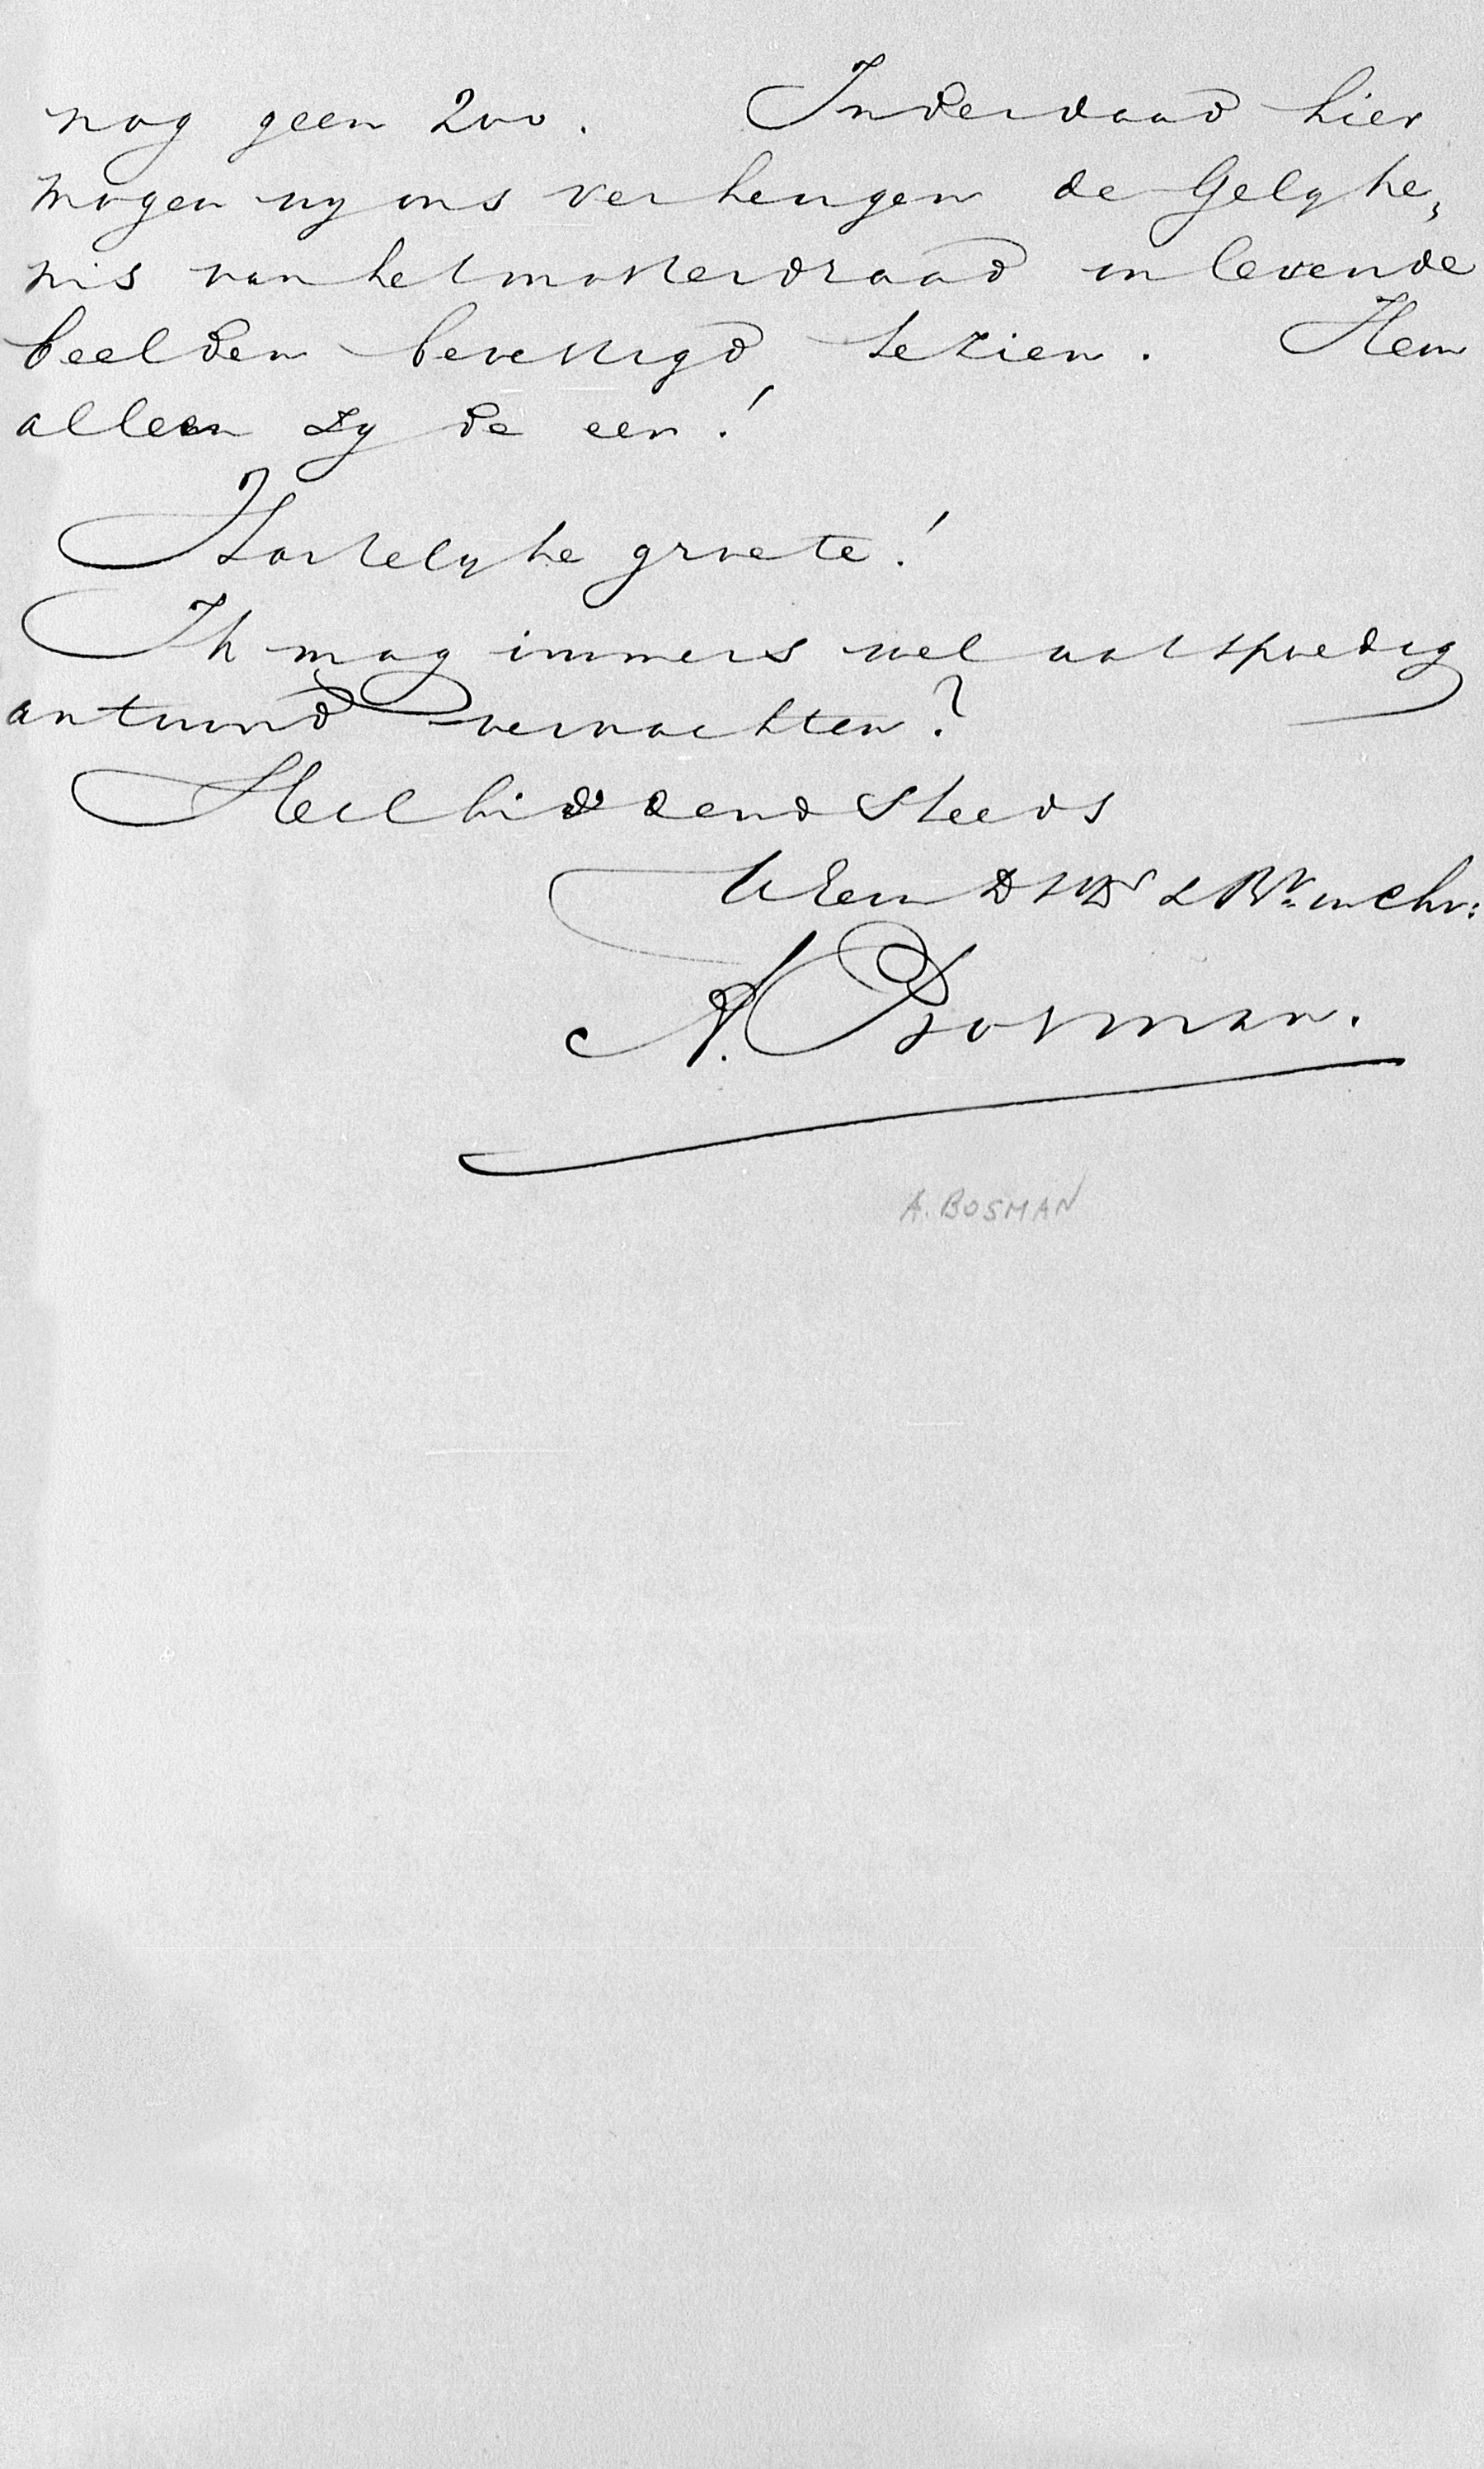 nog geen 200. Inderdaad hier
mogen wy ons verheugen de Gelyke„
nis van het mosterdzaad in levende
beelden bevestigd te zien. Hem
alleen zy de eer!
Hartelyke groete!
Ik mag immers wel wat spoedig
antwoord verwachten?
Heilbiddend steeds
UEew DWDr & Br. in Chr:
A. Bosman.
A. BOSMAN